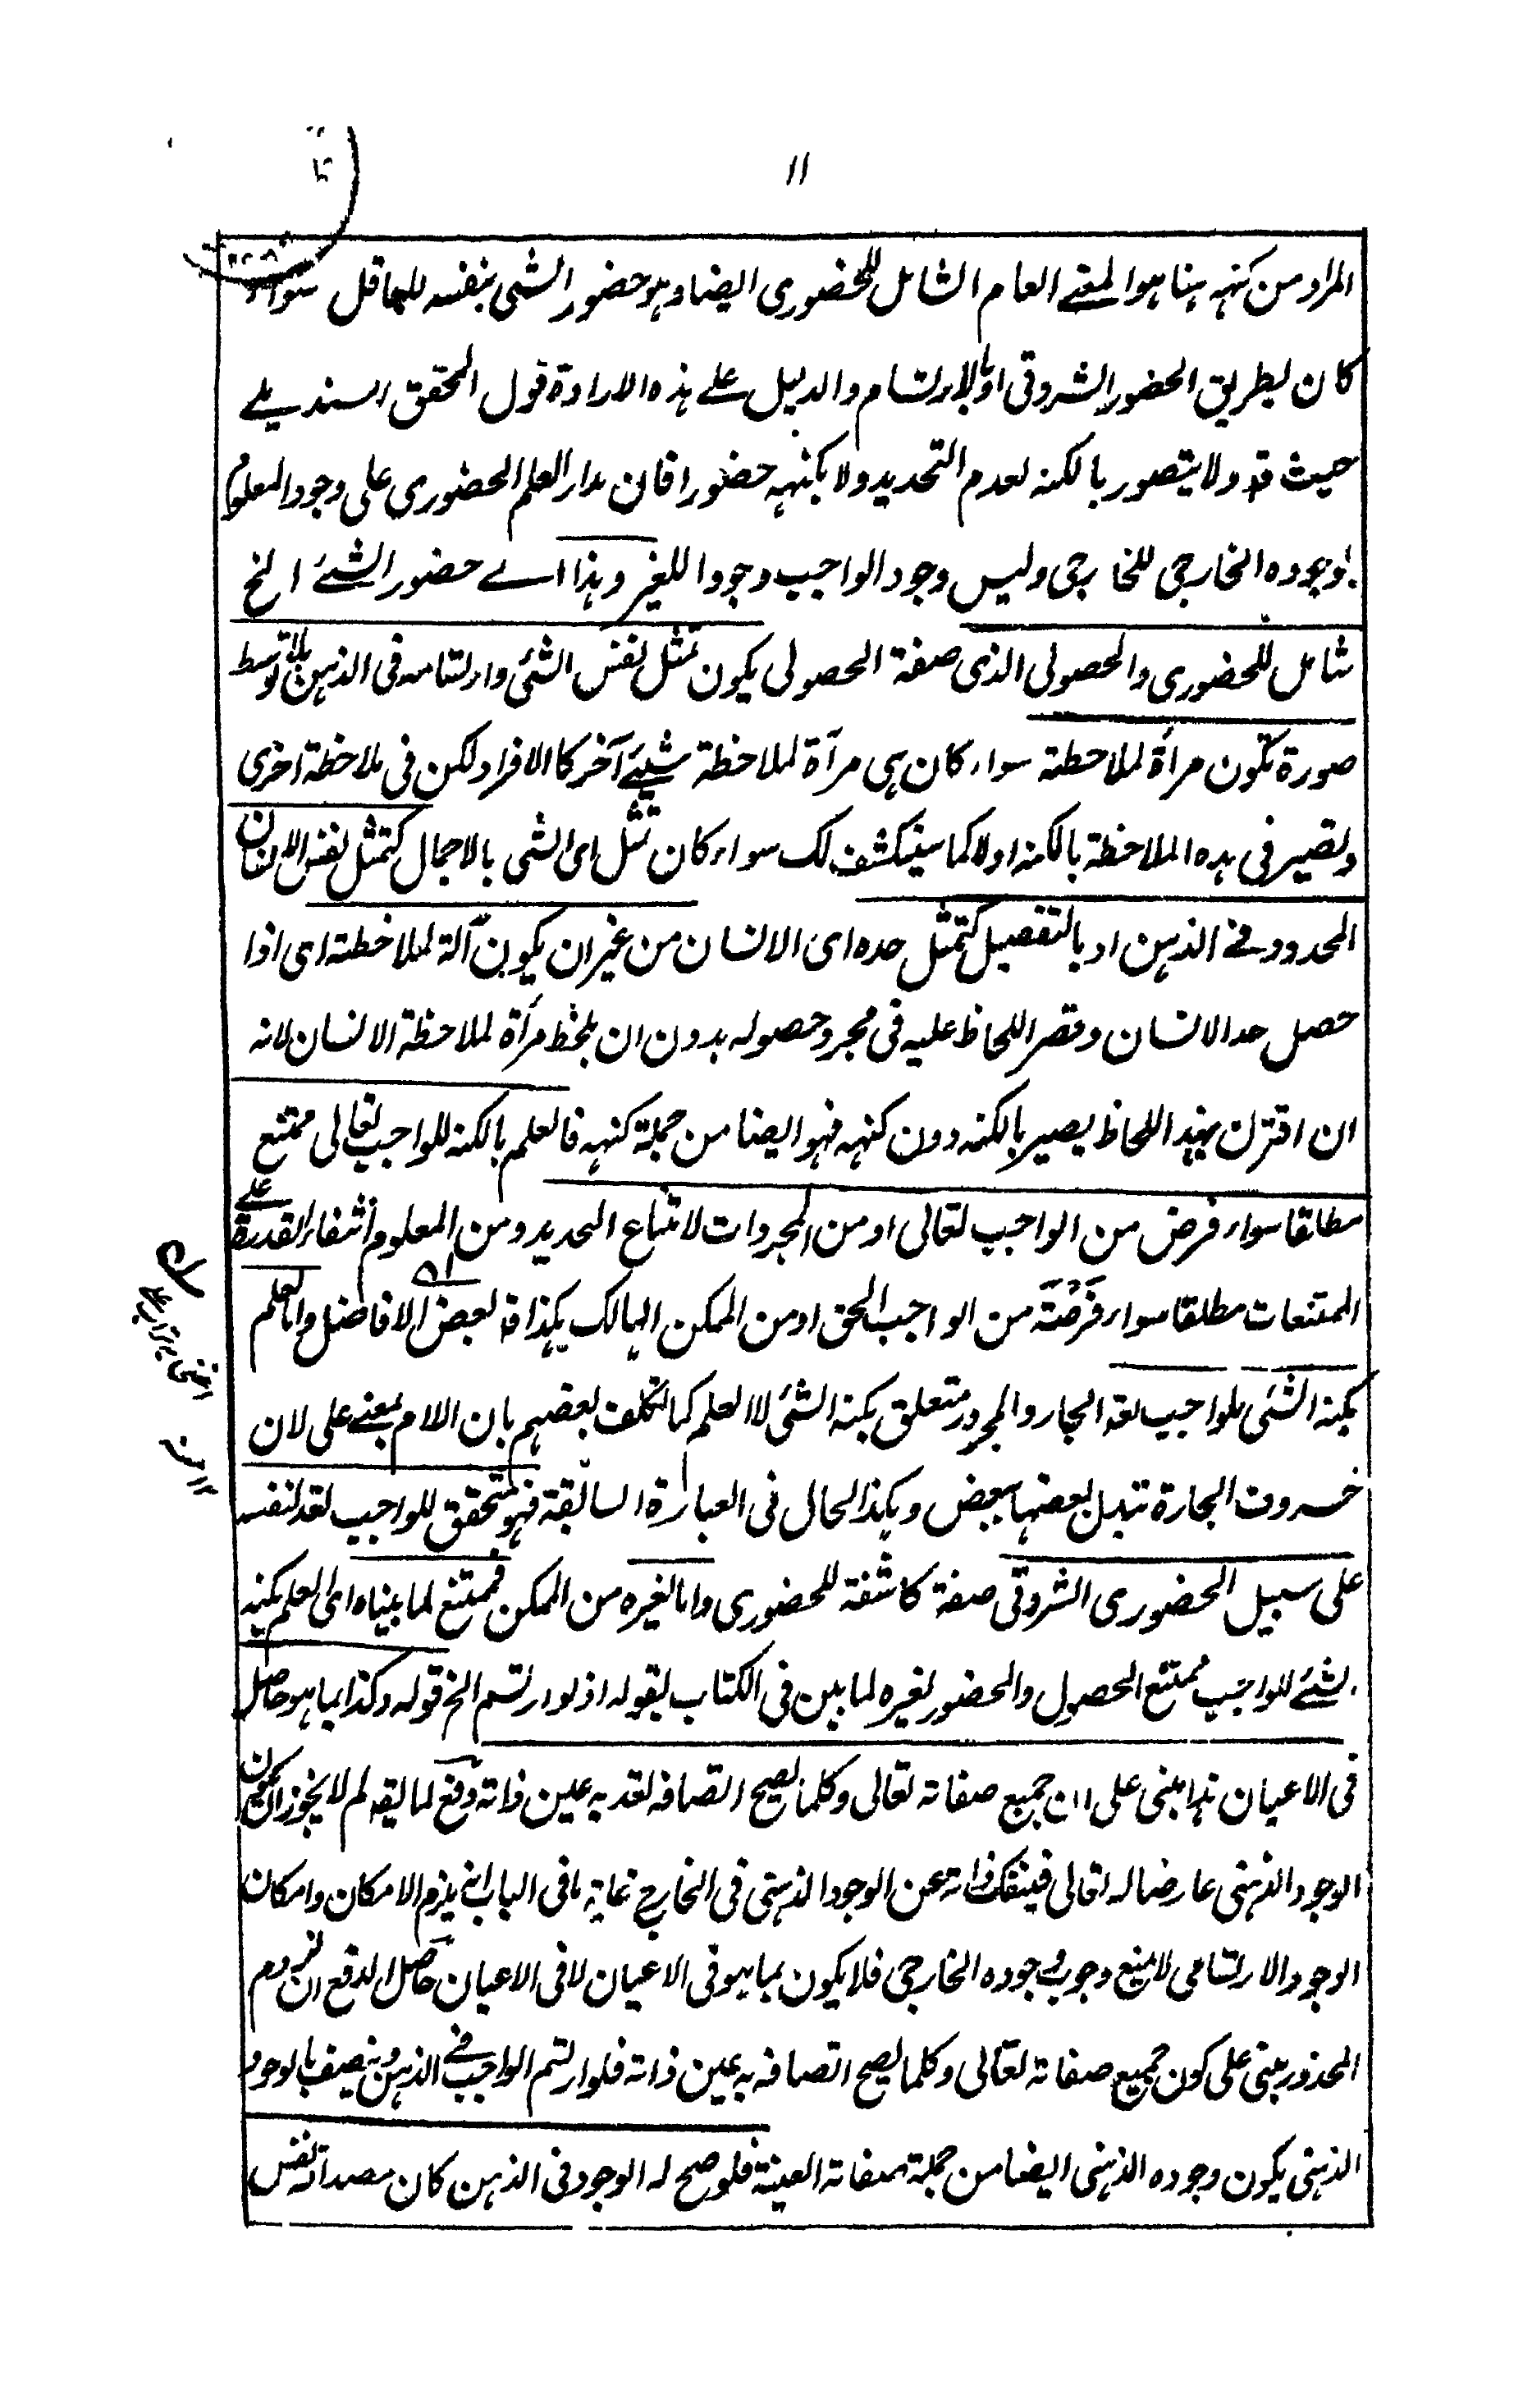 ١١
المراد من كنهه هنا هو المعنے العام الشامل للحضوري ايضا وهو حضور الشي بنفسه للعاقل سواء
كان بطريق الحضور الشروقي او بالارتسام والدليل علے هذه الارادة قول المحقق السنديلے
حيث قہ ولا يتصور بالكنه لعدم التحديد ولا بكنهه حضورا فان مدار العلم الحضوري على وجود المعلوم
بوجوده الخارجي للخارجي وليس وجود الواجب وجودا للغير وهذا اے حضور الشئ الخ
شامل للحضوري والحصولي الذي صفة الحصولي يكون تمثل نفس الشئ وارتسامه في الذهن بلا توسط
صورة تكون مرآة لملاحظته سواء كان هي مرآة لملاحظة شيئ آخر كالافراد لكن في ملاحظة اخرى
وتصير في هذه الملاحظة بالكنه اولا كما سينكشف لك سواء كان تمثل اى الشي بالاجمال كتمثل نفس الانسان
المحدود فے الذهن او بالتفصيل كتمثل حده اى الانسان من غير ان يكون آلة لملاحظته اى اذا
حصل حد الانسان وقصر اللحاظ عليه في مجرد حصوله بدون ان يلحظ مرآة لملاحظة الانسان لانه
ان اقترن بهذا اللحاظ يصير بالكنه دون كنهه فهو ايضا من جملة كنهه فالعلم بالكنه للواجب تعالى ممتنع
مطلقا سواء فرض من الواجب تعالى او من المجردات لامتناع التحديد ومن المعلوم انتفاء القدرة علے
الممتنعات مطلقا سواء فرضت من الواجب الحق او من الممكن الهالك هكذا قہ بعض الافاضل واما العلم
بكنه الشئ للواجب تعہ الجار والمجرور متعلق بكنه الشئ لا العلم كما تكلف بعضهم بان اللام بمعنے على لان
حروف الجارة تتبدل بعضها ببعض وهكذا الحال في العبارة السابقة فهو متحقق للواجب تعہ لنفسه
على سبيل الحضوري الشروقي صفة كاشفة للحضوري واما لغيره من الممكن فممتنع لما بيناه اى العلم بكنه
الشئ للواجب ممتنع الحصول والحضور لغيره لما بين في الكتاب بقوله اذ لو ارتسم الخ قوله وكذا بما هو حاصل
في الاعيان هذا مبني على ان جميع صفاته تعالى وكلما يصح اتصافه تعہ به عين ذاته دفع لما يقہ لم لا يجوز ان يكون
الوجود الذهني عارضا له تعالى فينفك ذاته عن الوجود الذهني في الخارج غاية ما في الباب انه يلزم الامكان وامكان
الوجود الارتسامي لا يمنع وجوب وجوده الخارجي فلا يكون بما هو في الاعيان لا في الاعيان حاصل الدفع ان لزوم
المحذور مبني على كون جميع صفاته تعالى وكلما يصح اتصافه به عين ذاته فلو ارتسم الواجب فے الذهن ويتصف بالوجود
الذهني يكون وجوده الذهني ايضا من جملة صفاته العينية فلو صح له الوجود في الذهن كان مصداقه نفس